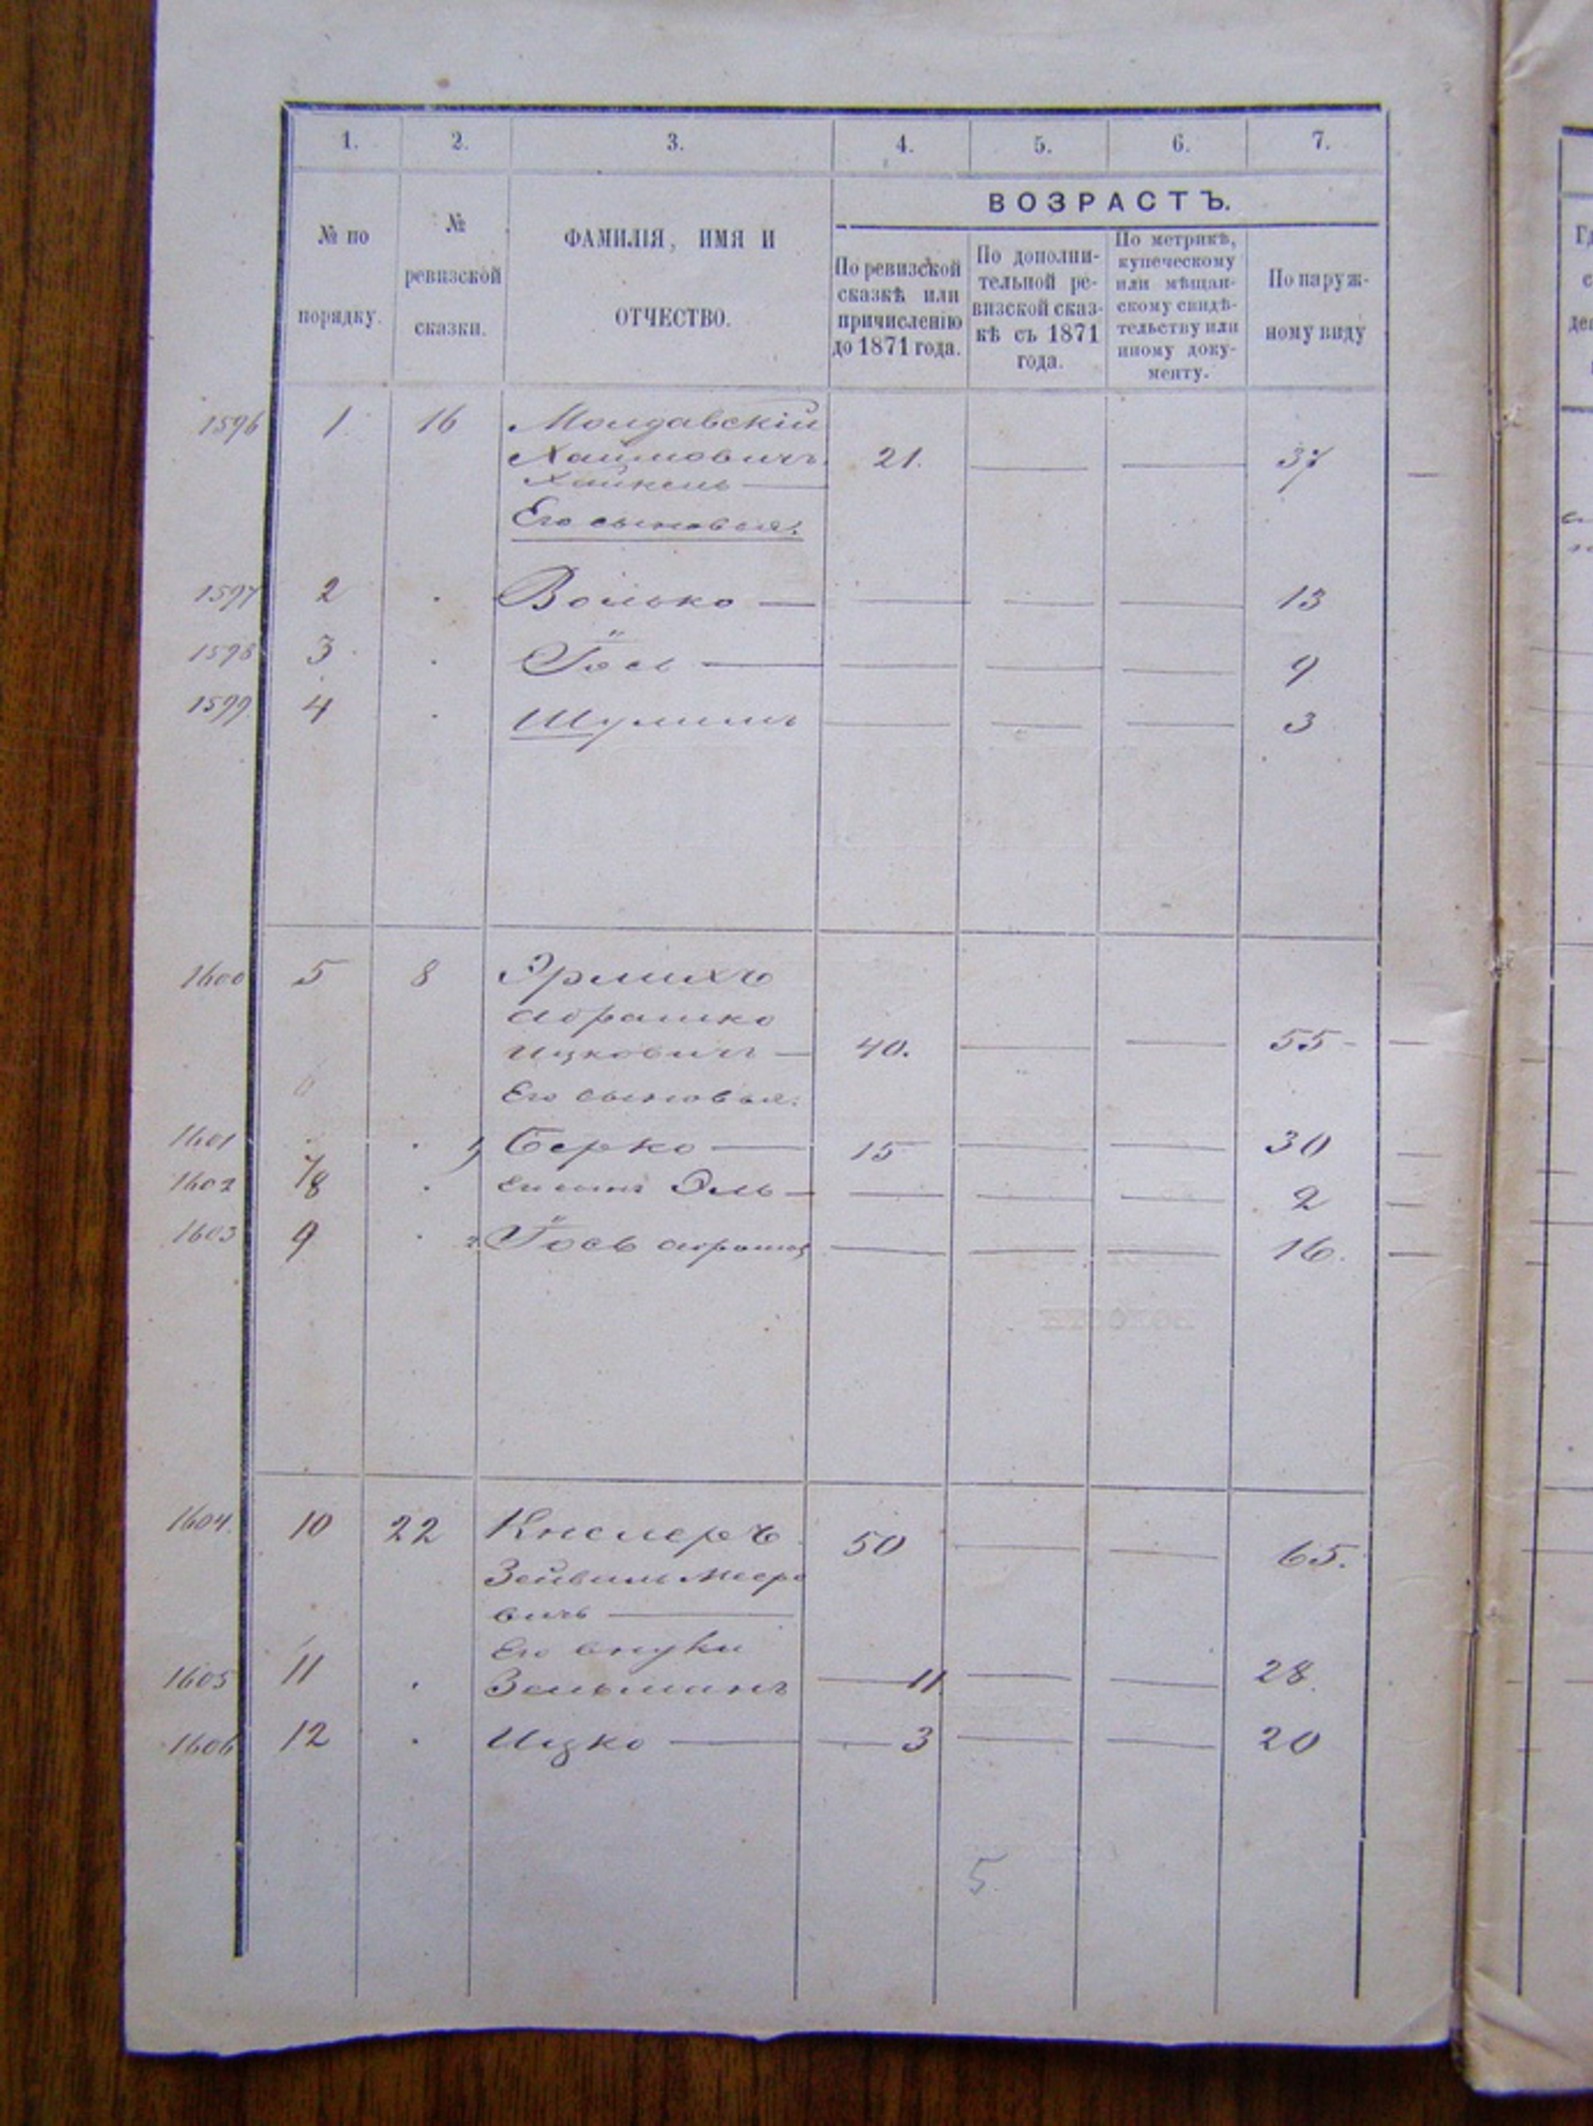 1. 2. 3. 4. 5. 6. 7.
ВОЗРАСТЪ.
№ по
порядку.
№
ревизской
сказки.
ФАМИЛІЯ, ИМЯ И
ОТЧЕСТВО.
По ревизской
сказкѣ или
причисленію
до 1871 года.
По дополни-
тельной ре-
визской сказ-
кѣ съ 1871
года.
По метрикѣ,
купеческому
или мѣщан-
скому свидѣ-
тельству или
иному доку-
менту.
По наруж-
ному виду
1596 1 16 Молдавскій
Хаимовичъ 21. — — 37
Хайкель —
Его сыновья:
1597 2 . Волько — — — — 13
1598 3 . Іосъ — — — — 9
1599 4 . — — — 3
1600 5 8 Эрлихъ
Абрашко
Ицковичъ — 40. — — 55
6 Его сыновья:
1601 . . 1, Берко — 15 — — 30
1602 7/8 . Его сынъ Эль — — — — 2
1603 9 . 2, Іось — — — 16.
1604. 10 22 Кнелеръ 50 — — 65.
Зейвиль Мееро
вичъ —
Его внуки
1605 11 . Зельманъ — 11 — — 28.
1606 12 . Ицко — — 3 — — 20
5